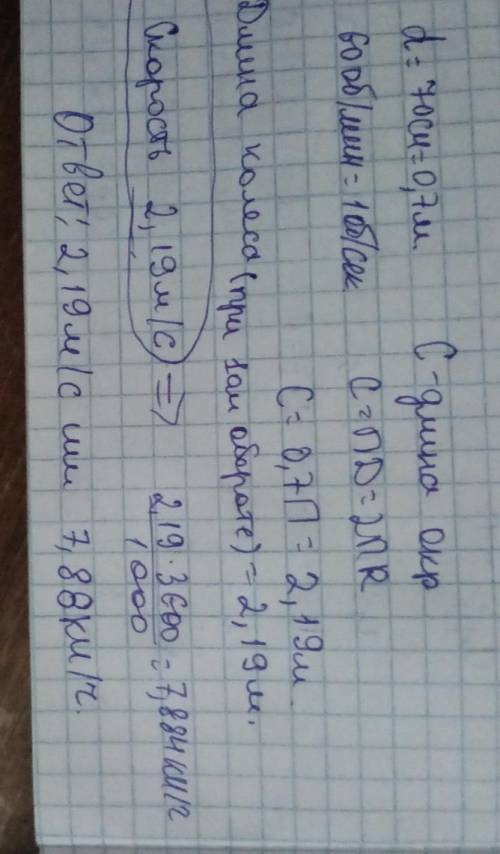 d = 70см = 0,7м. С - длина окр
60об/мин = 1об/сек С = ПD = 2ПR
С = 0,7П = 2,19м.
Длина колеса (при 1ом обороте) = 2,19м.
Скорость 2,19м/с) => 2,19·3600/1000 = 7,884км/ч
Ответ: 2,19м/с или 7,88км/ч.